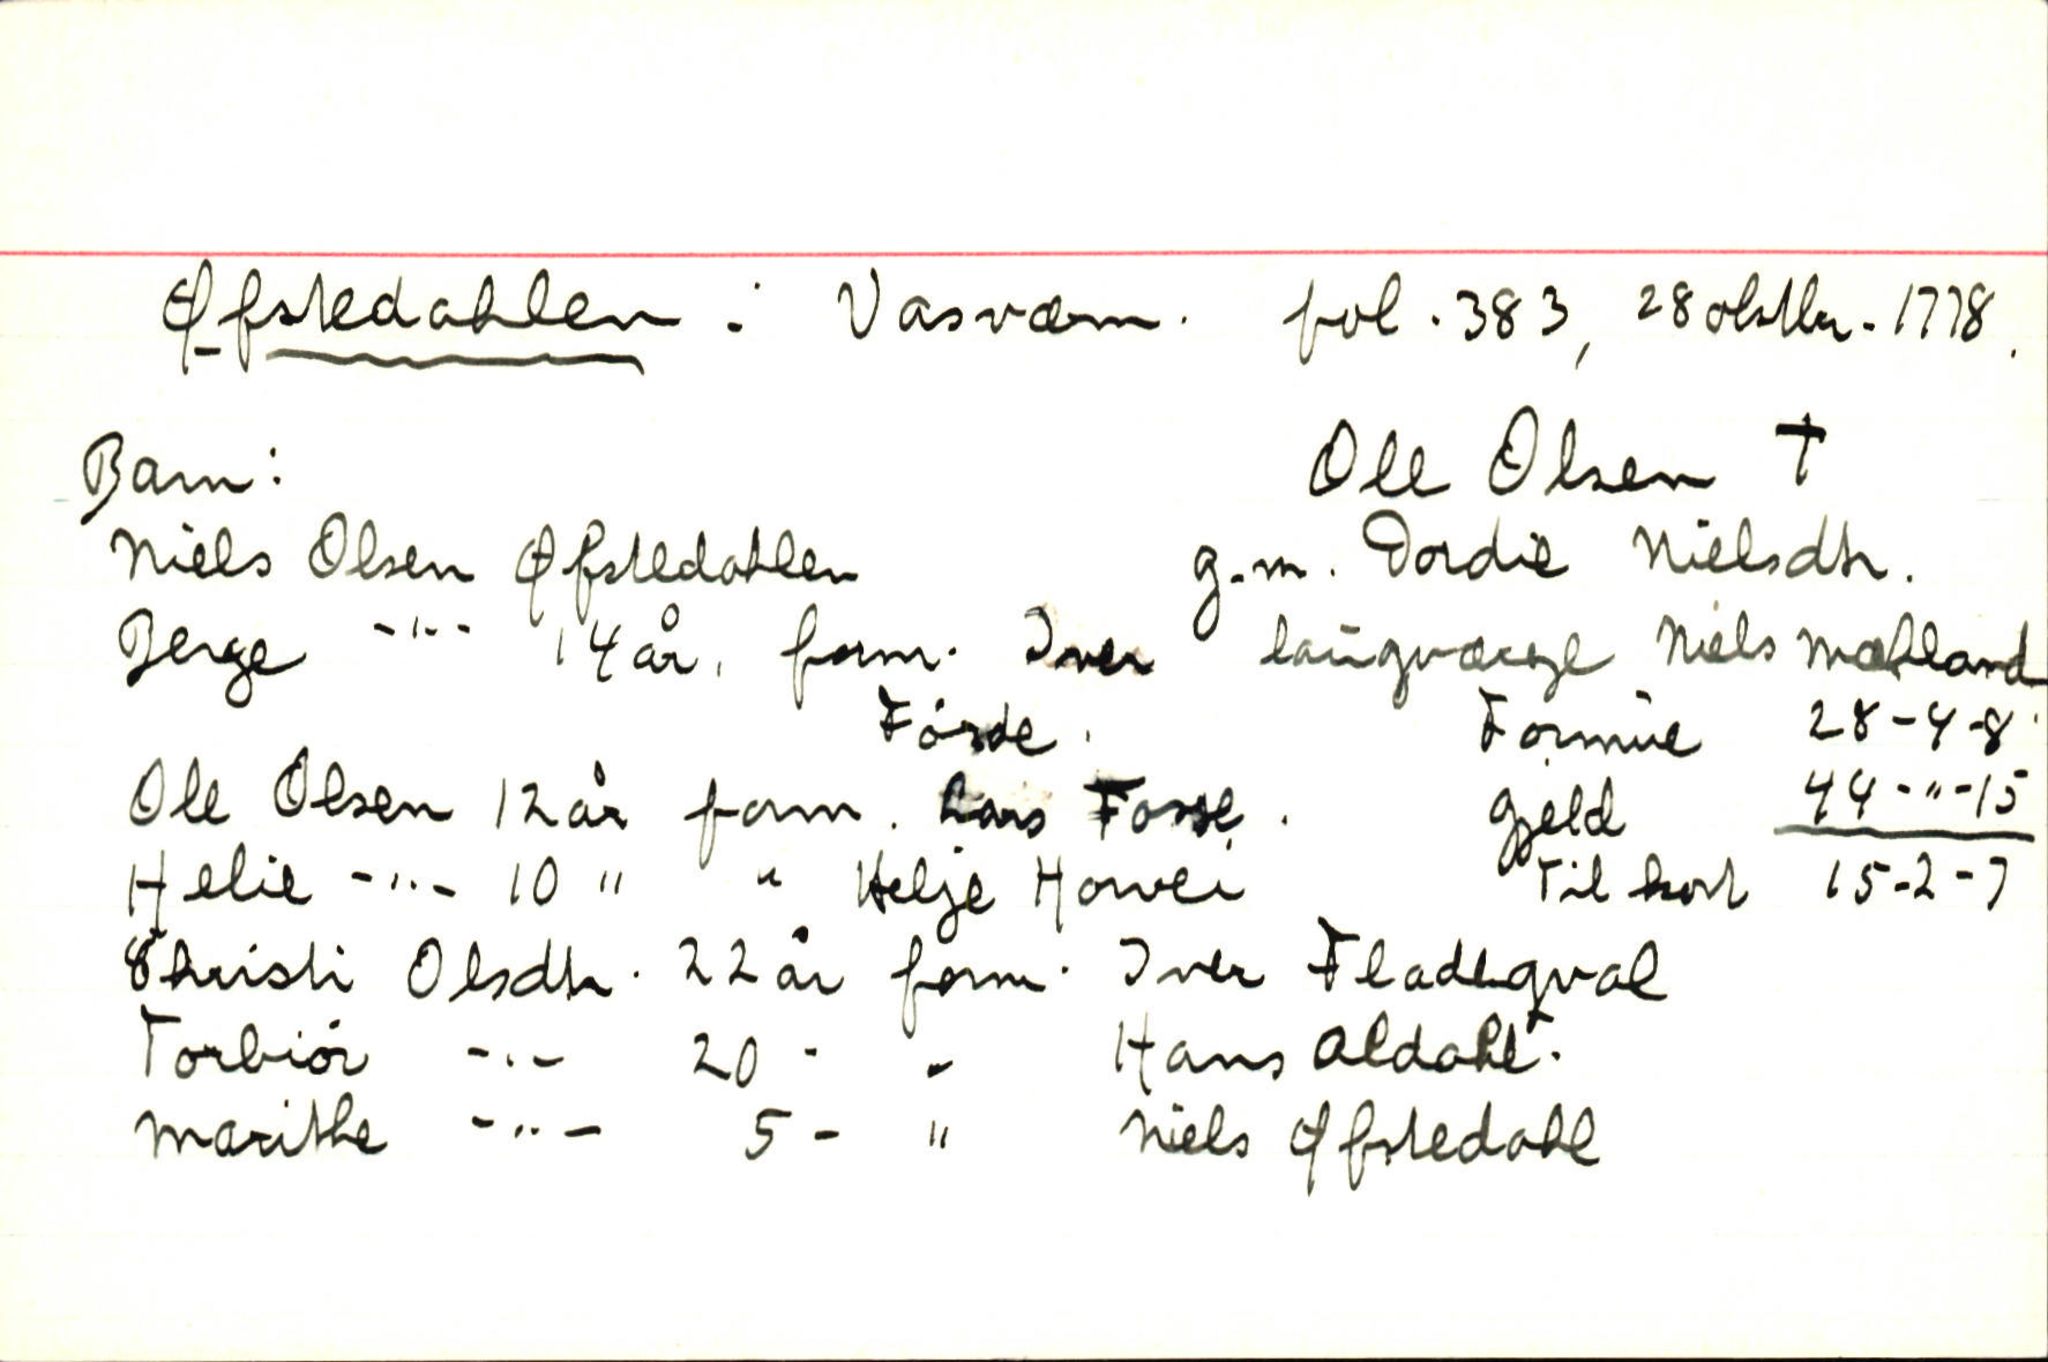 Øfstedahlen : Vasværn. fol. 383, 28 oktbr. 1778.
Barn: Ole Olsen †
Niels Olsen Øfstedahlen g.m. Dordie Nielsdtr.
Berge -"- 14 år, form. Iver laugværge Niels Mæhland
Førde. Formue 28-4-8
Ole Olsen 12 år form. Lars Fosse. Gjeld 44-"-15
Helie -"- 10 " " Helje Hovei Til kort 15-2-7
Christi Olsdtr. 22 år form. Iver Fladeqval
Torbiør -"- 20 - " Hans Aldahl.
Marithe -"- 5 - " Niels Øfstedahl